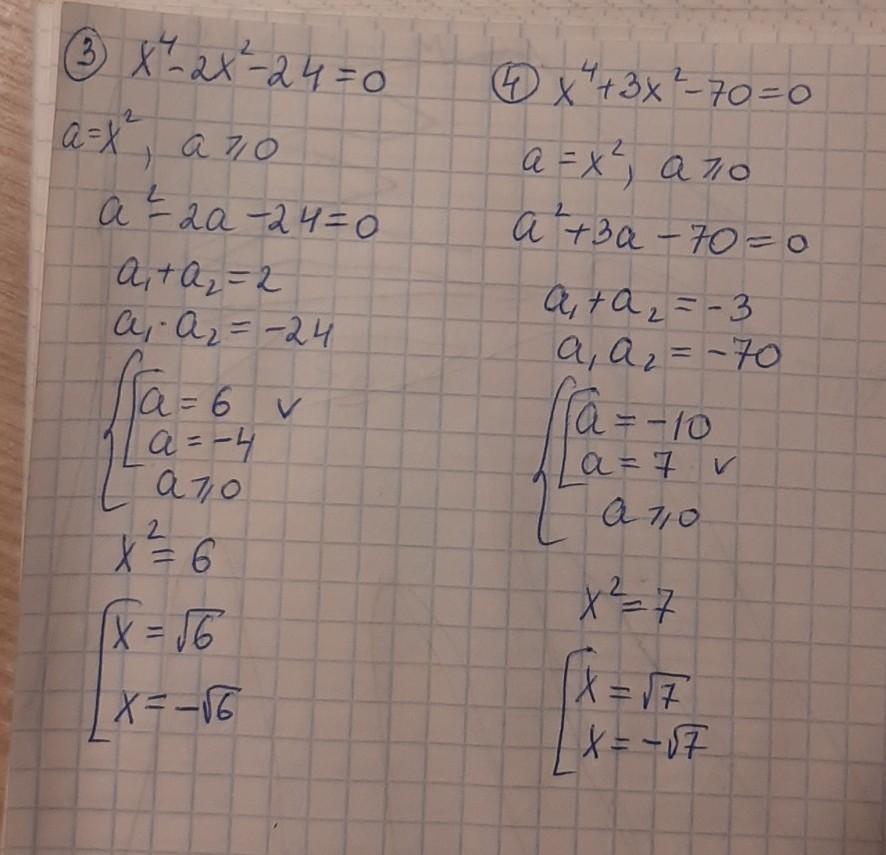 ③ x⁴-2x²-24=0
a=x², a⩾0
a²-2a-24=0
a₁+a₂=2
a₁·a₂=-24
a=6 ✓
a=-4
a⩾0
x²=6
x=√6
x=-√6
④ x⁴+3x²-70=0
a=x², a⩾0
a²+3a-70=0
a₁+a₂=-3
a₁a₂=-70
a=-10
a=7 ✓
a⩾0
x²=7
x=√7
x=-√7